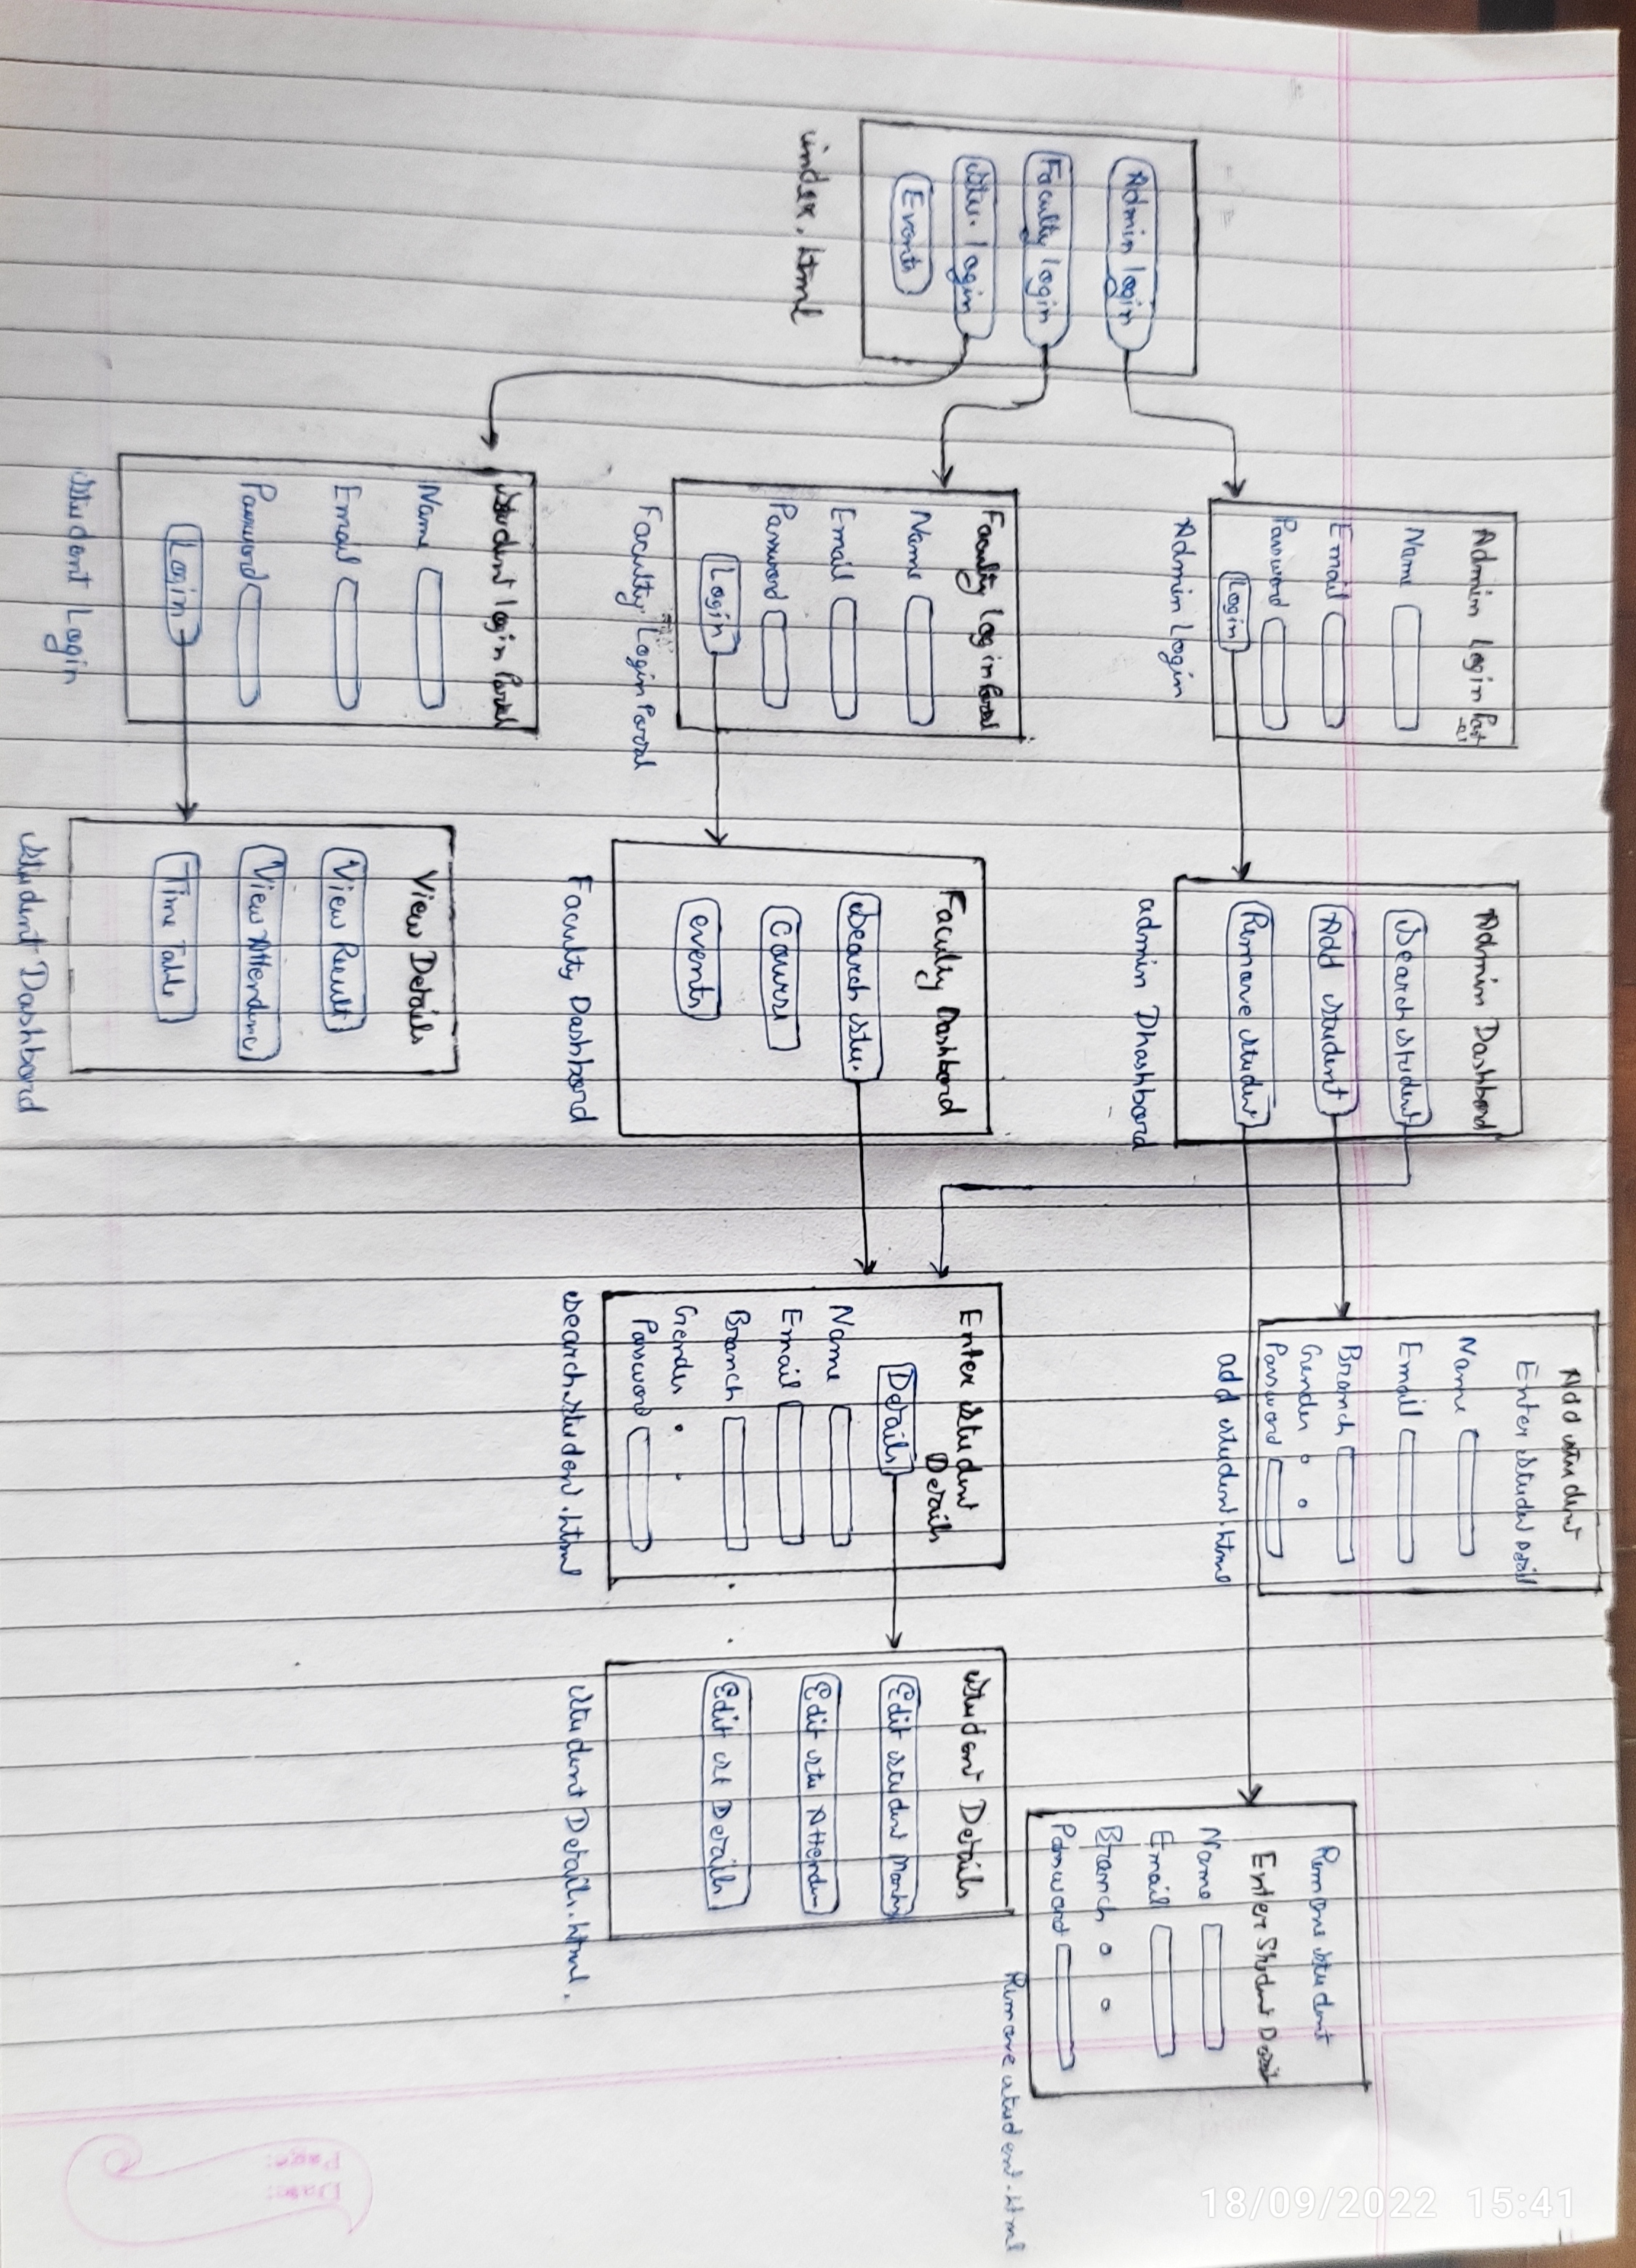 Admin login
Faculty login
Stu. login
Events
index.html
Admin login
Name
Email
Password
Login
Admin Login
Faculty login Portal
Name
Email
Password
Login
Faculty Login Portal
Student login Portal
Name
Email
Password
Login
Student Login
Admin Dashbord
Search student
Add student
Remove student
admin Dhashbord
Faculy Dashbord
Search stu.
Course
events
Faculty Dashbord
View Details
View Result
View Attendme
Time Table
Student Dashbord
Add student
Enter student Detail
Name
Email
Branch
Gender
Password
add student.html
Enter Student
Details
Details
Name
Email
Branch
Gender
Password
Search.student.html
Remove student
Enter Student Detail
Name
Email
Branch
Password
Remove student.html
Student Details
Edit student Marks
Edit stu Attendan
Edit st Details
Student Details.html.
Page:
Date:
18/09/2022 15:41